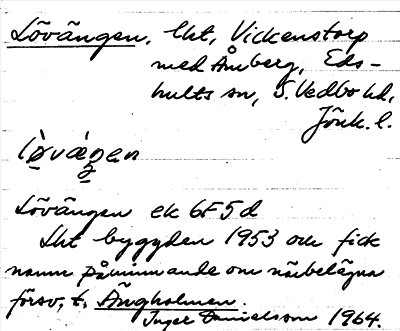 Lövängen, lht, Vickenstorp
med Åmberg, Eds-
hults sn, S. Vedbo hd,
Jönk. l.
lø̀vàŋən
Lövängen ek 6F5d
Lht byggden 1953 och fick
namn påminnande om närbelägna
försv. t. Ängholmen.
Inger Danielsson 1964.